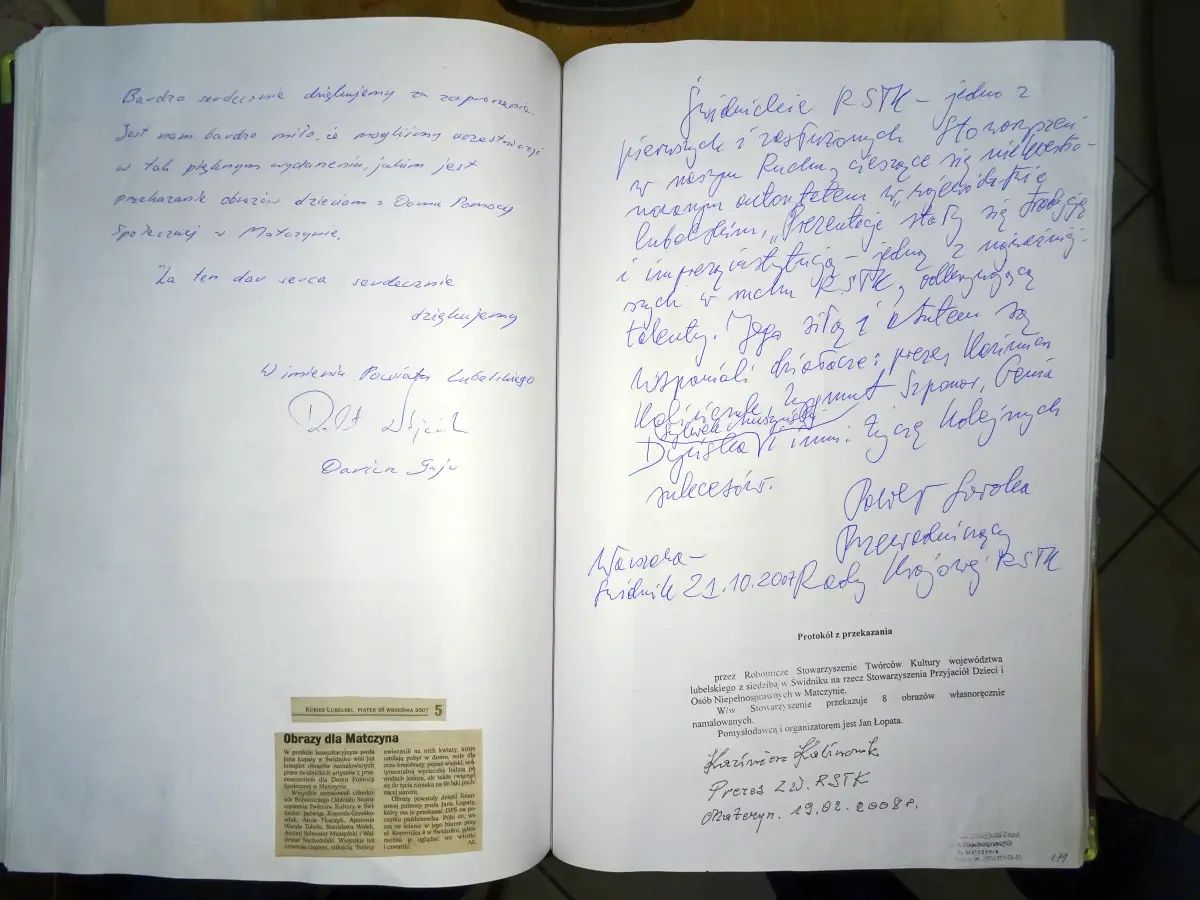 Bardzo serdecznie dziękujemy za zaproszenie.
Jest nam bardzo miło, że mogliśmy uczestniczyć
w tak pięknym wydarzeniu, jakim jest
przekazanie obrazów dzieciom z Domu Pomocy
Społecznej w Matczynie.
Za ten dar serca serdecznie
dziękujemy
W imieniu Powiatu Lubelskiego
Dariusz Gaju
KURIER LUBELSKI, PIĄTEK 28 WRZEŚNIA 2007 5
Obrazy dla Matczyna
W punkcie konsultacyjnym posła
Jana Łopaty w Świdniku wisi już
komplet obrazów namalowanych
przez świdnickich artystów z prze-
znaczeniem dla Domu Pomocy
Społecznej w Matczynie.
Wszystkie namalowali członko-
wie Robotniczego Oddziału Stowa-
rzyszenia Twórców Kultury w Świ-
dniku: Jadwiga
Anna Tkaczyk, Apolonia
Wanda Tubots, Stanisława Wójcik,
Antoni Sylwester Muszyński i Wal-
demar Suchodolski. Wszystkie też
emanują ciepłem, miłością. Twórcy
uwiecznili na nich kwiaty, które
umilają pobyt w domu, miłe dla
oczu krajobrazy, pejzaż wiejski, sen-
tymentalną wycieczkę łodzią po
wodach jeziora, ale także rwącego
się do życia rumaka na tle łąki pach-
nącej sianem.
Obrazy powstały dzięki finan-
sowej pomocy posła Jana Łopaty,
który ma je przekazać DPS na po-
czątku października. Póki co, wi-
szą na ścianie w jego biurze przy
ul. Kopernika 6 w Świdniku, gdzie
można je oglądać we wtorki
i czwartki. AL
Świdnickie RSTK – jedno z
pierwszych i zasłużonych Stowarzyszeń
w naszym Ruchu, cieszące się niekwestio-
nowanym autorytetem w województwie
lubelskim. „Prezentacje stały się tradycją
i imprezą instytucją – jedną z najważniej-
szych w ruchu RSTK, odkrywającą
talenty. Jego siłą i atutem są
wspaniali działacze: prezes Kazimierz
Kalinowski, Zygmunt Szponar, Genia
Sylwek Muszyński
i inni. Życzę kolejnych
sukcesów.
Paweł Soroka
Przewodniczący
Warszawa –
Świdnik 21.10.2007 Rady Krajowej RSTK
Protokół z przekazania
przez Robotnicze Stowarzyszenie Twórców Kultury województwa
lubelskiego z siedzibą w Świdniku na rzecz Stowarzyszenia Przyjaciół Dzieci i
Osób Niepełnosprawnych w Matczynie.
W/w Stowarzyszenie przekazuje 8 obrazów własnoręcznie
namalowanych.
Pomysłodawcą i organizatorem jest Jan Łopata.
Kazimierz Kalinowski
Prezes ZW. RSTK
Matczyn. 19.02.2008r.
179